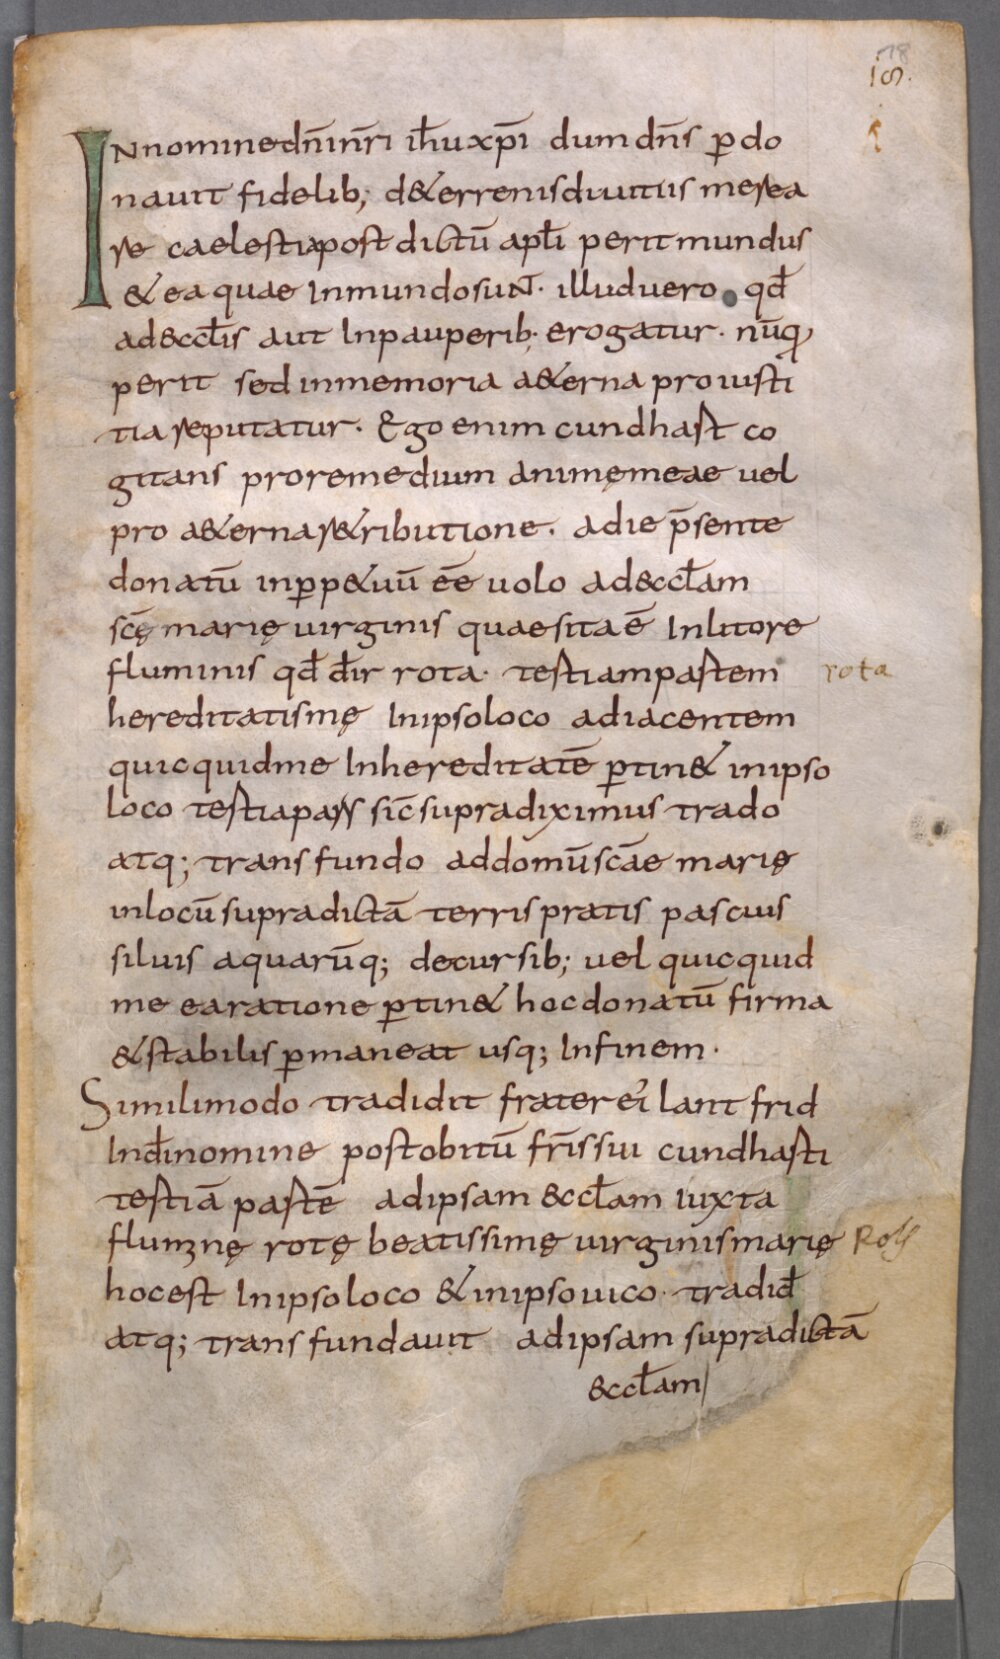 78
18.
IN nomine dn̄i nr̄i ih̄u xp̄i dum dn̄s p̲do
nauit fidelib; d&errenis diuitiis merea
re caelestia post dictū apl̄i perit mundus
& ea quae Inmundo suNT· illud vero qđ
ad&ccl̄is aut Inpauperib; erogatur· nūq̨
perit sed inmemoria a&erna pro iusti
tia reputatur· Ego enim cundhart co
gitans pro remedium animę meae uel
pro a&erna r&ributione· adie p̄sente
donatū inp̲p&uū ēē uolo ad&ccl̄am
scę̄ marię uirginis quae sita ē Inlitore
fluminis qđ dr̄ rota· testiam partem
rota
hereditatis mę Inipso loco adiacentem
quicquid me Inhereditatē p̲tin& inipso
loco testia pars sic̄ supradiximus trado
atq; transfundo ad domū scāe marię
inlocū supradictā terris pratis pascuis
siluis aquarūq; decursib; uel quicquid
me ea ratione p̲tin& hoc donatū firma
& stabilis p̲maneat usq; Infinem·
Similimodo tradidit frater ei lantfrid
Indī nomine post obitū fr̄is sui cundharti
testiā partē ad ipsam &ccl̄am iuxta
flumine rotę beatissimę uirginis marię
Rott
hoc est Inipso loco & inipso uico· tradiđ
atq; transfundauit ad ipsam supradictā
&ccl̄am